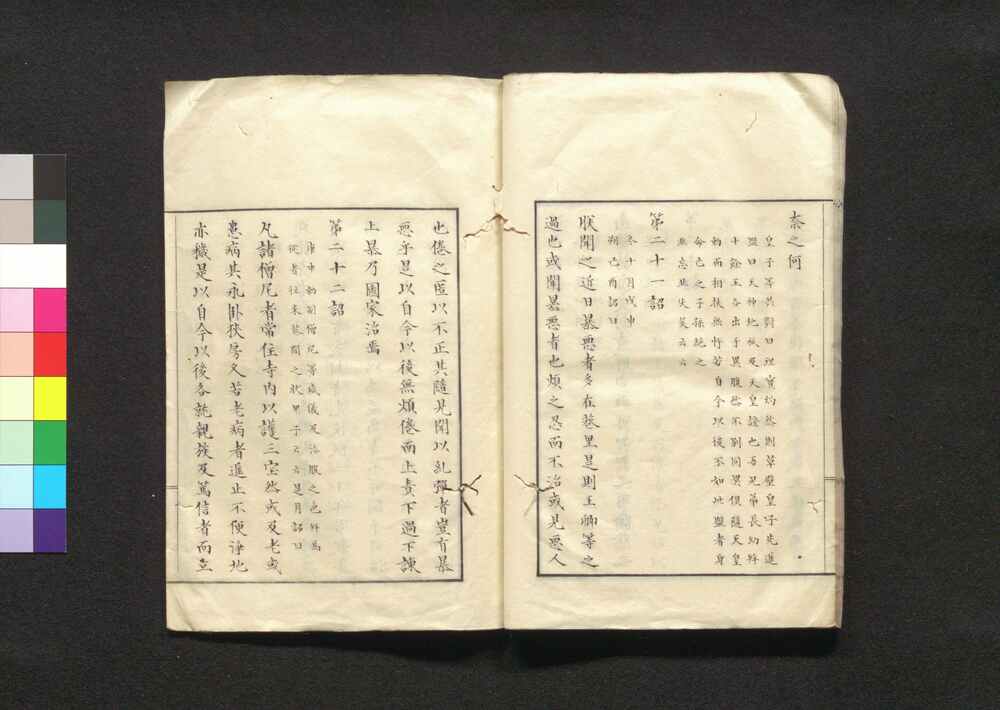 奈之何
皇子等共對曰理實灼然則草壁皇子先進
盟曰天神地祇及天皇證也吾兄弟長幼幷
十餘王各出于異腹然不別同異俱隨天皇
勅而相扶無忤若自今以後不如此盟者身
命亡之子孫絶之
非忘非失矣云云
第二十一詔
冬十月戊申
朔己酉詔曰
朕聞之近日暴惡者多在巷里是則王卿等之
過也或聞暴惡者也煩之忍而不治或見惡人
也倦之匿以不正其隨見聞以糺彈者豈有暴
惡乎是以自今以後無煩倦而上責下過下諫
上暴乃國家治焉
第二十二詔
庚申勅制僧尼等威儀及法服之色幷馬
從者往來巷閭之狀甲子云云是月詔曰
凡諸僧尼者常住寺內以護三宝然或及老或
患病其永臥狹房久苦老病者進止不便淨地
亦穢是以自今以後各就親族及篤信者而立